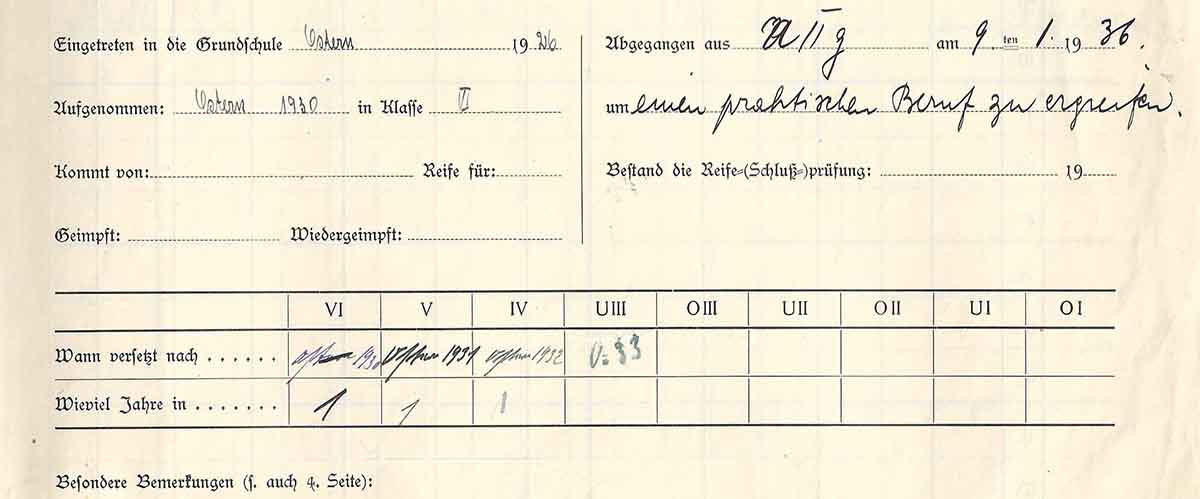 Eingetreten in die Grundschule Ostern 1926
Abgegangen aus U II g am 9. ten 1. 1936.
Aufgenommen: Ostern 1930 in Klasse VI
um einen praktischen Beruf zu ergreifen.
Kommt von: Reife für:
Bestand die Reife=(Schluß=)prüfung: 19
Geimpft: Wiedergeimpft:
VI V IV UIII OIII UII OII UI OI
Wann versetzt nach . . . . . . Ostern 1930 Ostern 1931 Ostern 1932 O. 33
Wieviel Jahre in . . . . . . . 1 1 1
Besondere Bemerkungen (s. auch 4. Seite):